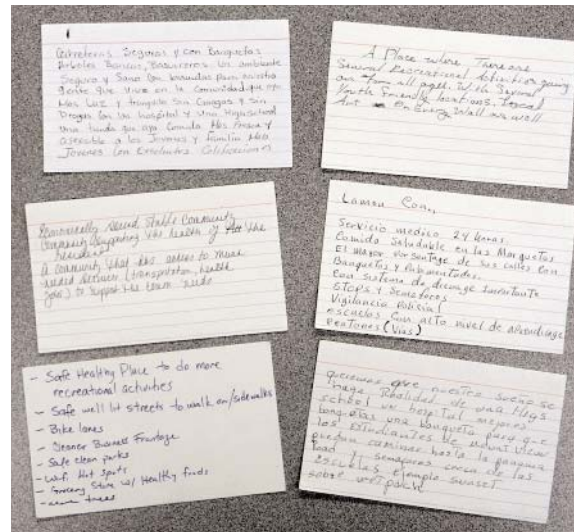 1
Carreteras Seguras y con Banquetas
Arboles Bancas, Basureros Un ambiente
Seguro y Sano Con
gente que Vive en la Comunidad que
Mas Luz y tranquilo Sin Gangas y sin
Drogas Con Un hospital y Una High school
Una tienda que aya Comida Mas Fresca y
asesible a los Jovenes y familia Mas
Jovenes Con Excelentes Calificaciones
A Place where There are
Several Recreational Activities going
on all ages. With Several
Youth Friendly locations,
Art On Every Wall as well
Economically Sound Stable Community
Community Supporting the health of the
Resident
A Community that has access to much
needed Services (transportation, health
jobs) to Support the
Lamon Con...
Servicio medico 24 horas
Comida Saludable en las Marquetas
El mayor porsentage de sus calles con
Banquetas y Pabimentadas.
Con sistema de dreinage
STOPS y Semaforos
Vigilancia Policial
escuelas con alto nivel de aprendizage
Peatones (Vias)
- Safe Healthy Place to do more
recreational activities
- Safe well lit streets to walk on/sidewalks
- Bike lanes
- Cleaner Business Frontage
- Safe clean parks
- Wifi Hot Spots
- Grocery Store w/ Healthy foods
- trees
queremos que nuestro sueño se
haga Realidad de una High
school un hospital mejores
banquetas una banqueta para que
los estudiantes de
puedan caminar hacia la
Road y semaforos cerca de las
escuelas ejemplo sunset
sobre